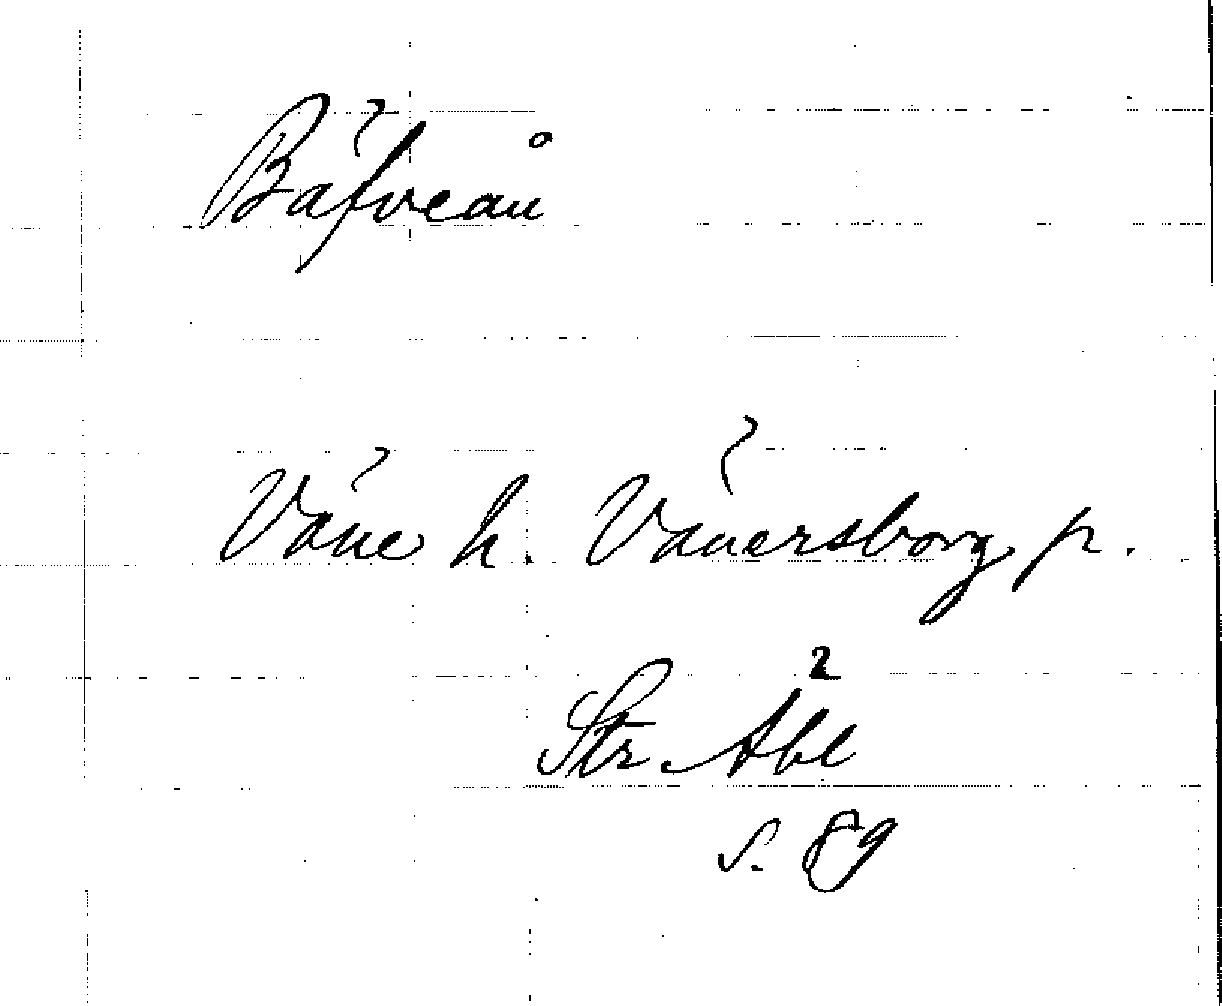 Bäfveån
Väne h. Vänersborg p.
2
Str. Abl
s. 89